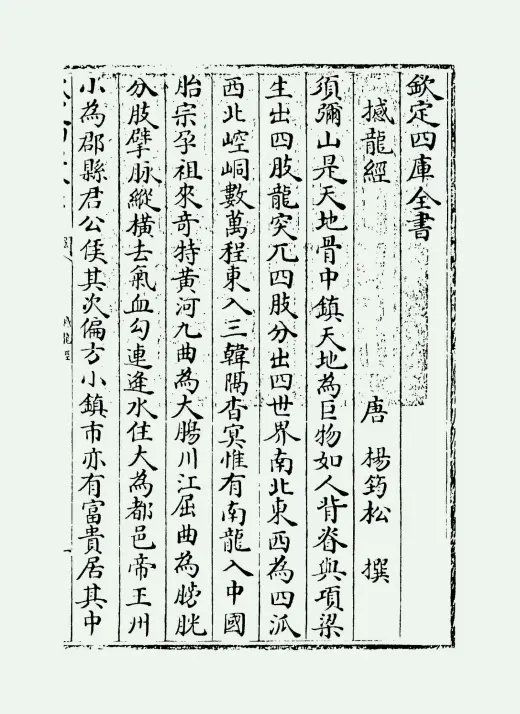 欽定四庫全書
撼龍經 唐 楊筠松 撰
須彌山是天地骨中鎮天地為巨物如人背脊與項梁
生出四肢龍突兀四肢分出四世界南北東西為四派
西北崆峒數萬程東入三韓隔杳冥惟有南龍入中國
胎宗孕祖來奇特黃河九曲為大腸川江屈曲為膀胱
分肢擘脉縱橫去氣血勾連逢水住大為都邑帝王州
小為郡縣君公侯其次偏方小鎮市亦有富貴居其中